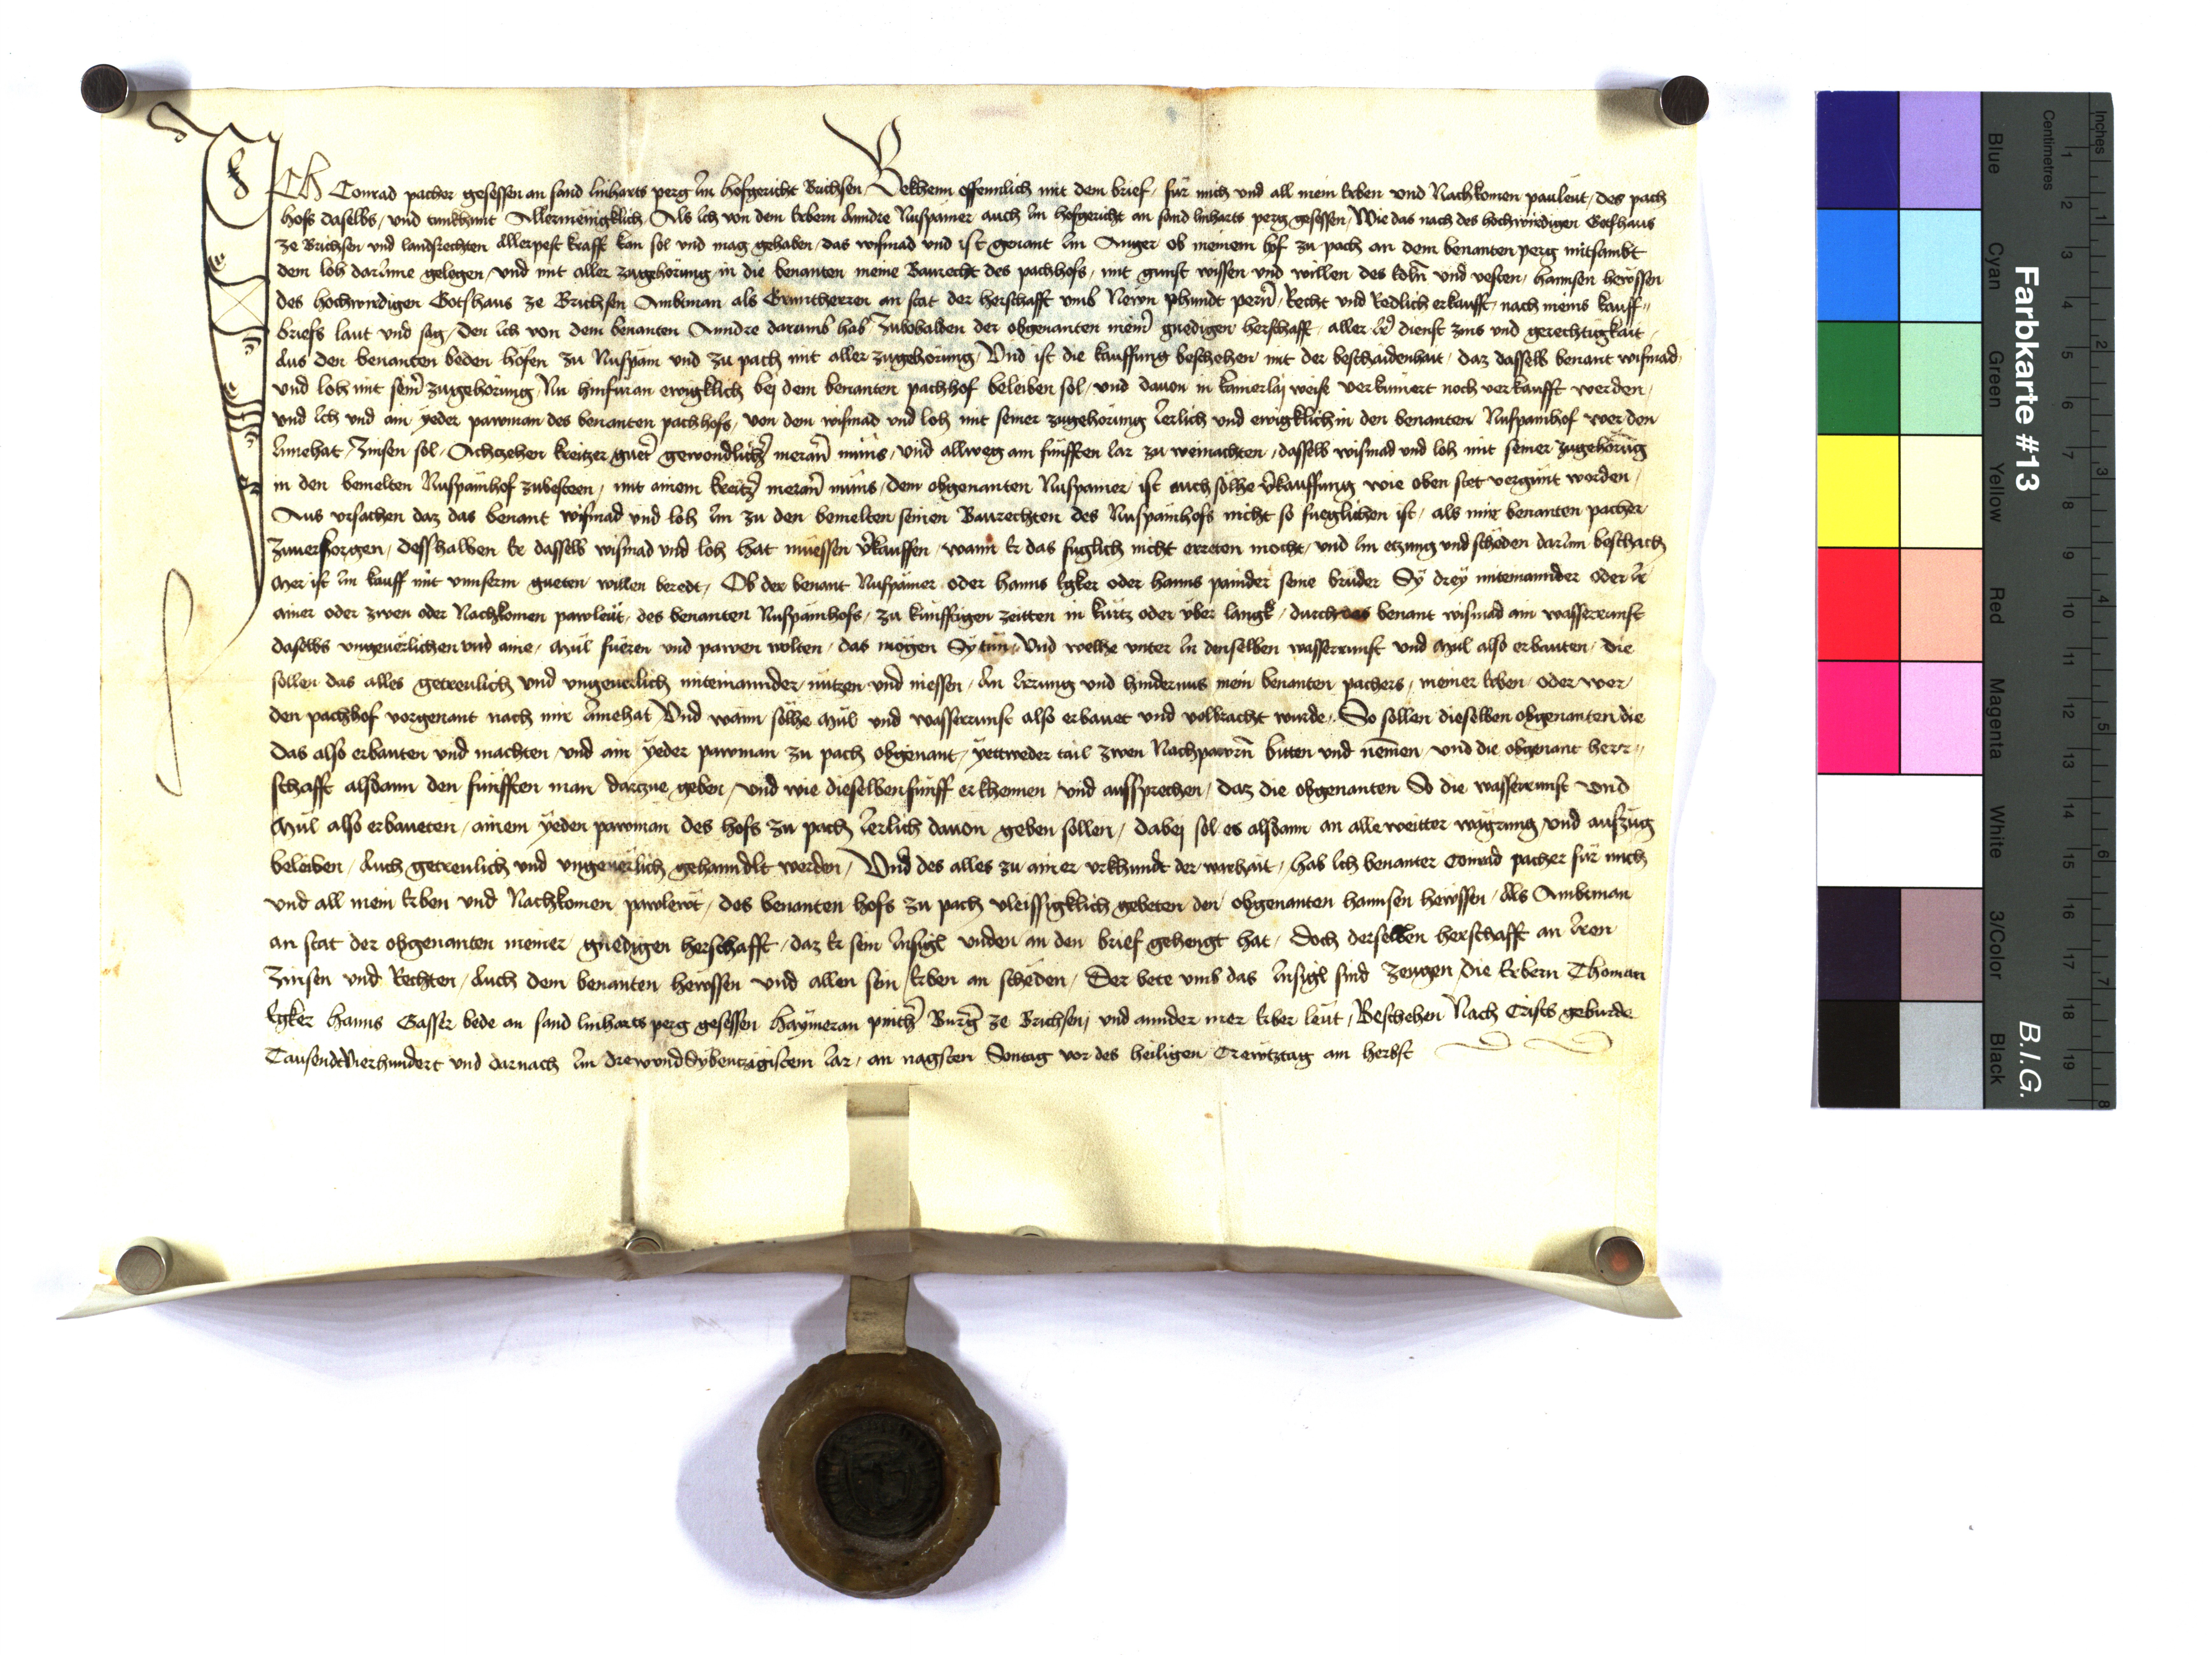 ICh Conrad pacher gesessen an sand linharts perg Im hofgericht Brichsen, Bekhenn offennlich mit dem brief, für mich und all mein Erben vnd Nachkomen pauleüt, des pach
hofs daselbs, vnd tunkhunt Allermenigklich, Als Ich von dem Erbern Anndre Nuspämer auch Im hofgericht an sand linharts perg gesessen, Wie das nach des hochwirdigen Gotshaus
ze Brichsen vnd landsrechten Allerpest krafft kan sol vnd mag gehaben, das wismad vnd ist genant Im Anger ob meinem hof zu pach an dem benanten perg mitsambt
dem loh darInne gelegen, vnd mit aller zugehörung in die benanten meine Baurecht des pachhofs, mit gunst wissen vnd willen des Edln̄ vnd vesten, hannsen hewssen
des hochwirdigen Gotshaus ze Brichsen Ambtman als Gruntherren an stat der herschafft vmb Newn phundt pern̄, Recht vnd Redlich erkaufft, nach meins kauff„
briefs laut vnd sag, den Ich von dem benanten Anndre darumb hab, Zubehalden der obgenanten meiner gnedigen herschafft, aller Ir dienst zins vnd gerechtigkait,
Aus den benanten beden höfen zu Nuspäm vnd zu pach mit aller zugehörung, Vnd ist die kauffung beschehen mit der beschaidenhait, daz dasselb benant wismad,
vnd loh mit seiner zugehörung, Nu hinfüran ewigklich bej dem benanten pachhof beleiben sol, vnd dauon in kainerlaj weise verkumert noch verkaufft werden,
vnd Ich vnd ain yeder pawman des benanten pachhofs, von dem wismad vnd loh mit seiner zugehörung Ierlich vnd ewigklich in den benanten Nuspämhof wer den
Innehat, Zinsen sol, Achtzehen kreitzer gueter gewondlicher meraner münss, vnd allweg am fünfften Iar zu weinachten, dasselb wismad vnd loh mit seiner zugehörūg
in den bemelten Nuspämhof zubesteen, mit ainem kreitzer meraner münss, dem obgenanten Nuspamer ist auch sölhe v̄kauffung wie oben stet vergünt worden,
Aus vrsachen daz das benant wismad vnd loh Im zu den bemelten seinen Baurechten des Nuspämhofs nicht so fueglichen ist, als mir benanten pacher
zuuersorgen, desshalben Er dasselb wismad vnd loh hat müessen v̄kauffen, wann Er das fuglich nicht erreten mocht, vnd Im etzung vnd scheden darInn beschach
Mer ist Im kauff mit vnnserm gueten willen beredt, Ob der benant Nuspämer oder hanns Egker oder hanns painder seine brüder Sÿ dreÿ miteinannder oder Ir
ainer oder zwen oder Nachkomen pawleüt, des benanten Nuspämhofs, zu künfftigen zeitten in kurtz oder über langk, durch das benant wismad ain wasserrunst
daselbs vngeuerlichen vnd aine, Mül füeren vnd pawen wolten, das mögen Sÿ tün, Vnd welhe vnter In denselben wasserrunst vnd Mül also erbauten, die
sollen das alles getreulich vnd vngeuerlich miteinannder nützen vnd niessen, An Irrung vnd hindernus mein benanten pachers, meiner Erben, oder wer
den pachhof vorgenant nach mir Innehat Vnd wann sölhe Mül vnd wasserrunst also erbauet vnd volbracht wurde, So sollen dieselben obgenanten die
Das also erbauten vnd machten, vnd ain ÿeder pawman zu pach obgenant, ÿettweder tail zwen Nachpawrn̄ bitten vnd nemen, vnd die obgenant herr„
schafft alsdann den fünfften man, darzue geben, vnd wie dieselben fünff erkhennen, vnd aussprechen, daz die obgenanten So die wasserrunst vnd
Mül also erbaueten, ainem ÿeden pawman des hofs zu pach Ierlich dauon geben sollen, dabej sol es alsdann an alle weitter wägrung vnd aufzüg
beleiben, Auch getreulich vnd vngeuerlich gehanndlt werden, Vnd des alles zu ainer vrkhundt der warhait, hab Ich benanter Conrad pacher für mich
vnd all mein Erben vnd Nachkomen, pawlewt, des benanten hofs zu pach vleissigklich gebeten den obgenanten hannsen hewssen, Als Ambtman
an stat der obgenanten meiner gnedigen herschafft, daz Er sein Insigl vnden an den brief gehengt hat, Doch derselben herschafft an Iren
zinsen vnd Rechten, Auch dem benanten hewssen vnd allen sein Erben an scheden, Der bete vmb das Insigl sind Zeugen, die Erbern Thoman
Egker hanns Gasser bede an sand linharts perg gesessen haÿmeran Burger ze Brichsen, vnd annder mer Erber leüt, Beschehen Nach Crists geburde
TausendtVierhundert vnd darnach Im drewvndSÿbentzigistem Iar, an nagsten Sontag vor des heiligen Crewtztag am herbst
Farbkarte #13
B.I.G.
Inches
Centimetres
Blue
Cyan
Green
Yellow
Red
Magenta
White
3/Color
Black
1 2 3 4 5 6 7 8 9 10 11 12 13 14 15 16 17 18 19
1 2 3 4 5 6 7 8